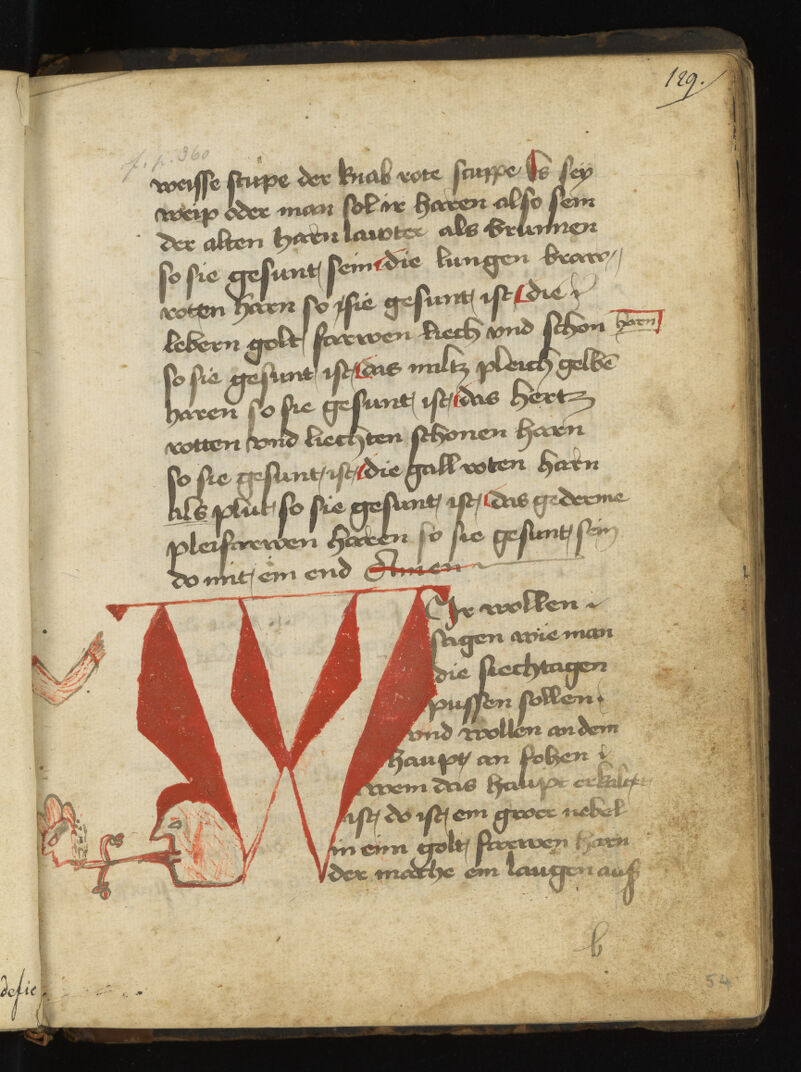 129.
f. p. 360
weisse stupe der knab rote stuppe Es sey
weip oder man sol ir haren also sein
der alten harn lawter als brunnen
so sie gesunt sein die lungen braw
roten harn so sie gesunt ist die
lebern golt farwen liech und schon harn
so sie gesunt ist das miltz pleich gelbē
haren so sie gesunt ist das hertz
rotten vnd liechten schonen harn
so sie gesunt ist die gall roten harn
als plut so sie gesunt ist das gederme
pleifarwen haren so sie gesunt sein
do mit ein end Amen
WIr wollen
sagen wie man
die siechtagen
pussen sollen
vnd wollen an dem
haupt an fohen
wem das haupt erkaltet
ist do ist ein groer nebel
in eim golt farwen harn
der mache ein laugen auß
b
54
defic